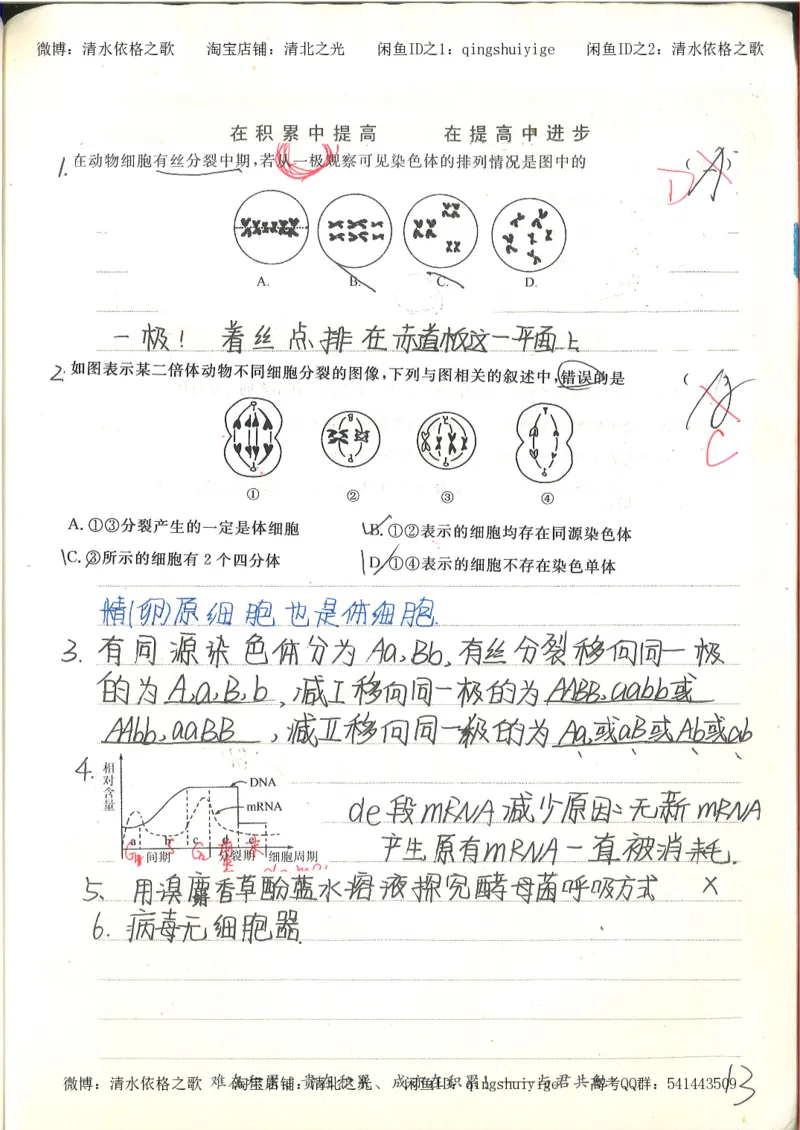 微博：清水依格之歌 淘宝店铺：清北之光 闲鱼ID之1：qingshuiyige 闲鱼ID之2：清水依格之歌
在积累中提高 在提高中进步
1. 在动物细胞有丝分裂中期，若从一极观察可见染色体的排列情况是图中的 ( A ) D
A. B. C. D.
一极！着丝点排在赤道板这一平面上
2. 如图表示某二倍体动物不同细胞分裂的图像，下列与图相关的叙述中，错误的是 ( ) C
① ② ③ ④
A. ①③分裂产生的一定是体细胞 B. ①②表示的细胞均存在同源染色体
C. ③所示的细胞有 2 个四分体 D. ①④表示的细胞不存在染色单体
精(卵)原细胞也是体细胞.
3. 有同源染色体分为 Aa,Bb,有丝分裂移向同一极
的为 A,a,B,b ,减I移向同一极的为 AABB,aabb或
AAbb,aaBB ,减II移向同一极的为 Aa,或aB或Ab或ab
4. 相对含量
DNA
mRNA
a b c d e
G1 S G2
间期 分裂期 细胞周期
de段mRNA减少原因：无新mRNA
产生原有mRNA一直被消耗.
5、用溴麝香草酚蓝水溶液探究酵母菌呼吸方式 ×
6. 病毒无细胞器
微博：清水依格之歌 淘宝店铺：清北之光 闲鱼ID：qingshuiyige 高考QQ群：541443509
13